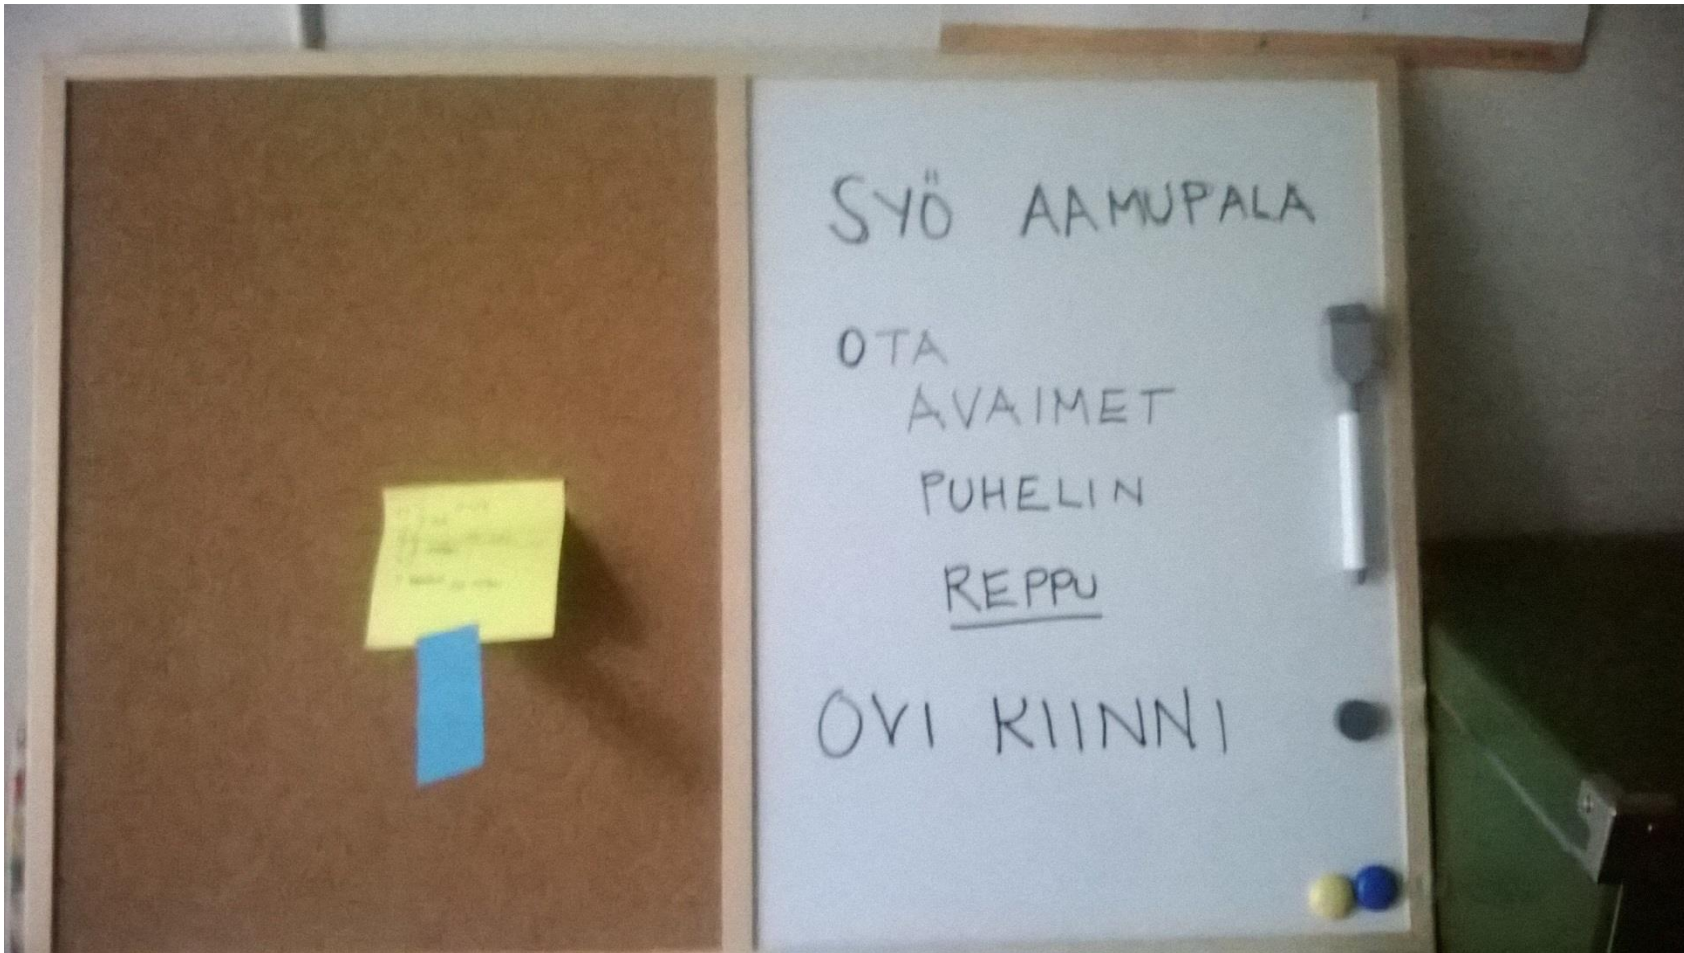 SYÖ AAMUPALA
OTA
AVAIMET
PUHELIN
REPPU
OVI KIINNI